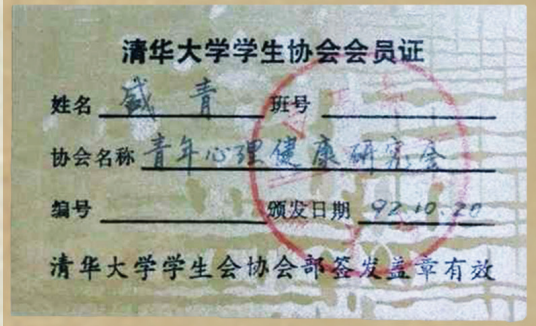 清华大学学生协会会员证
姓名 盛青 班号
协会名称 青年心理健康研究会
编号 颁发日期 92.10.20
清华大学学生会协会部签发盖章有效